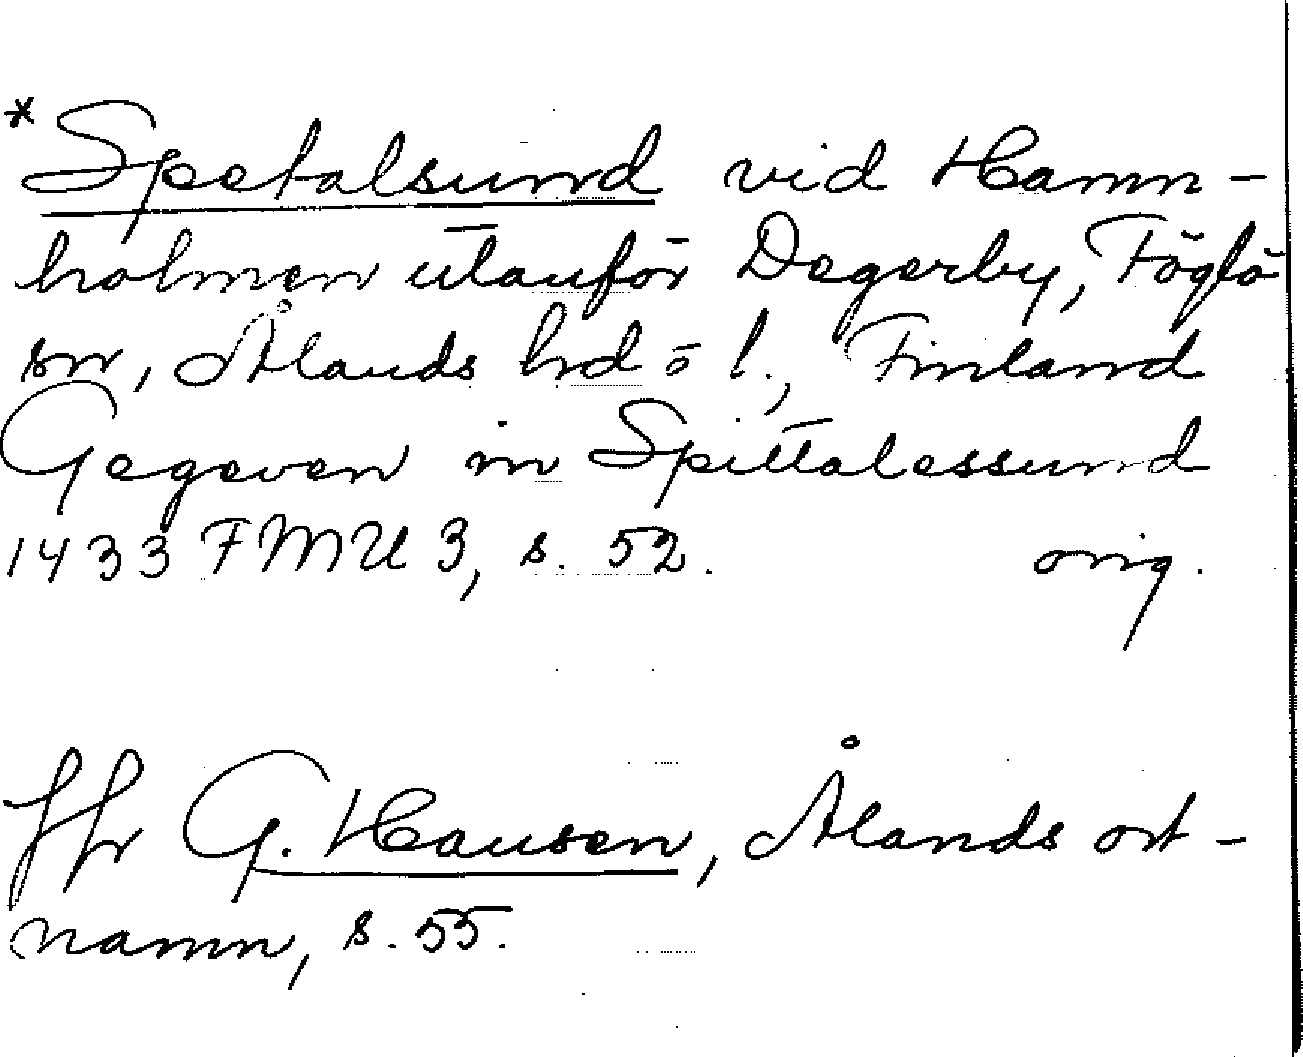 * Spetalsund vid Hamn-
holmen utanför Degerby, Föglö
sn, Ålands hd o l., Finland
Gegeven in Spittalessund
1433 FMU 3, s. 52. orig.
Jfr G. Hausen, Ålands ort-
namn, s. 55.